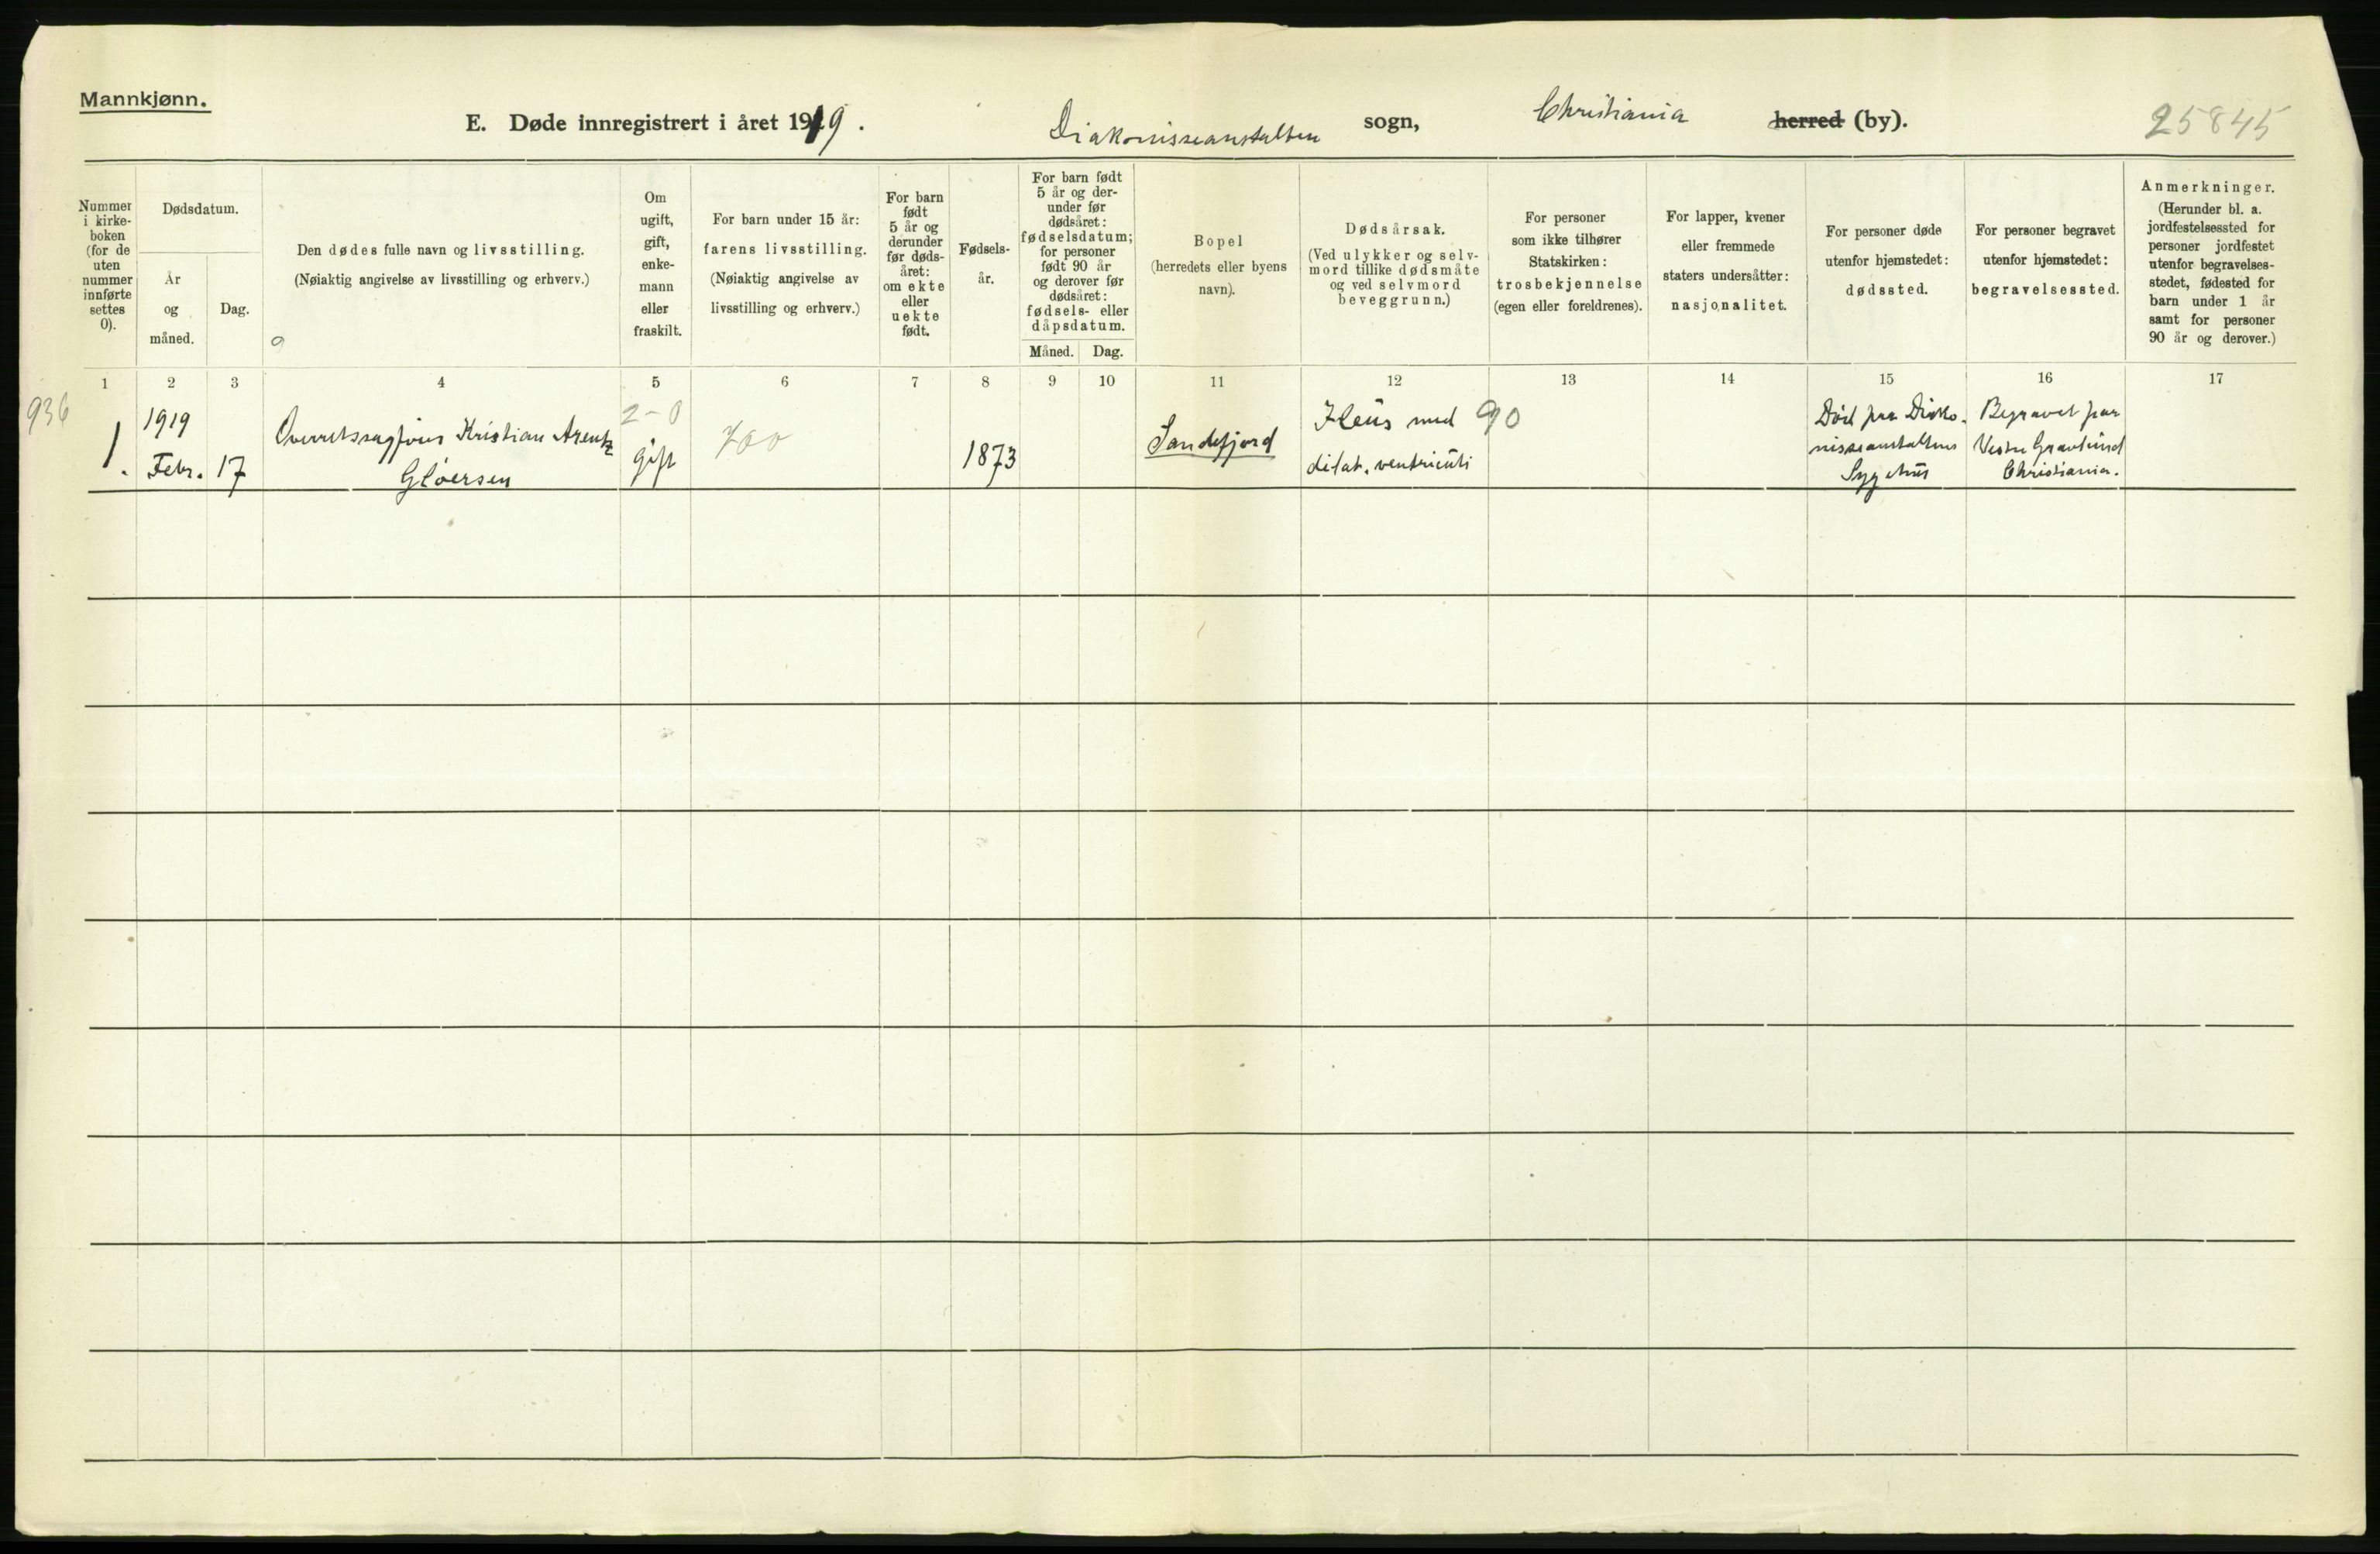 Mannkjønn.
E. Døde innregistrert i året 1919. Diakonisseanstalten sogn, Christiania herred (by). 25845
Nummer
i kirke-
boken
(for de
uten
nummer
innførte
settes
0).
Dødsdatum.
År
og
måned.
Dag.
Den dødes fulle navn og livsstilling.
(Nøiaktig angivelse av livsstilling og erhverv.)
Om
ugift,
gift,
enke-
mann
eller
fraskilt.
For barn under 15 år:
farens livsstilling.
(Nøiaktig angivelse av
livsstilling og erhverv.)
For barn
født
5 år og
derunder
før døds-
året:
om ekte
eller
uekte
født.
Fødsels-
år.
For barn født
5 år og der-
under før
dødsåret:
fødselsdatum;
for personer
født 90 år
og derover før
dødsåret:
fødsels- eller
dåpsdatum.
Måned. Dag.
Bopel
(herredets eller byens
navn).
Dødsårsak.
(Ved ulykker og selv-
mord tillike dødsmåte
og ved selvmord
beveggrunn.)
For personer
som ikke tilhører
Statskirken:
trosbekjennelse
(egen eller foreldrenes).
For lapper, kvener
eller fremmede
staters undersåtter:
nasjonalitet.
For personer døde
utenfor hjemstedet:
dødssted.
For personer begravet
utenfor hjemstedet:
begravelsessted.
Anmerkninger.
(Herunder bl. a.
jordfestelsessted for
personer jordfestet
utenfor begravelses-
stedet, fødested for
barn under 1 år
samt for personer
90 år og derover.)
1 2 3 4 5 6 7 8 9 10 11 12 13 14 15 16 17
936
1.
1919
Febr. 17
Overretssagfører Kristian Arentz
Gløersen
2-0
gift
1873
Sandefjord
Ileus med 90
dilat. ventriculi
Død paa Diako-
nisseanstaltens
Sygehus
Begravet paa
Vestre Gravlund
Christiania.